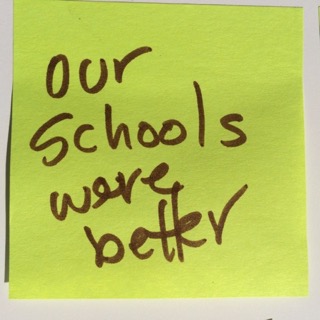 our
schools
were
better